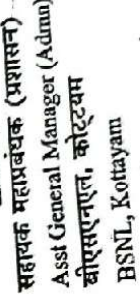 सहायक महाप्रबंधक (प्रशासन)
Asst General Manager (Admn)
बीएसएनएल, कोट्टयम
BSNL, Kottayam